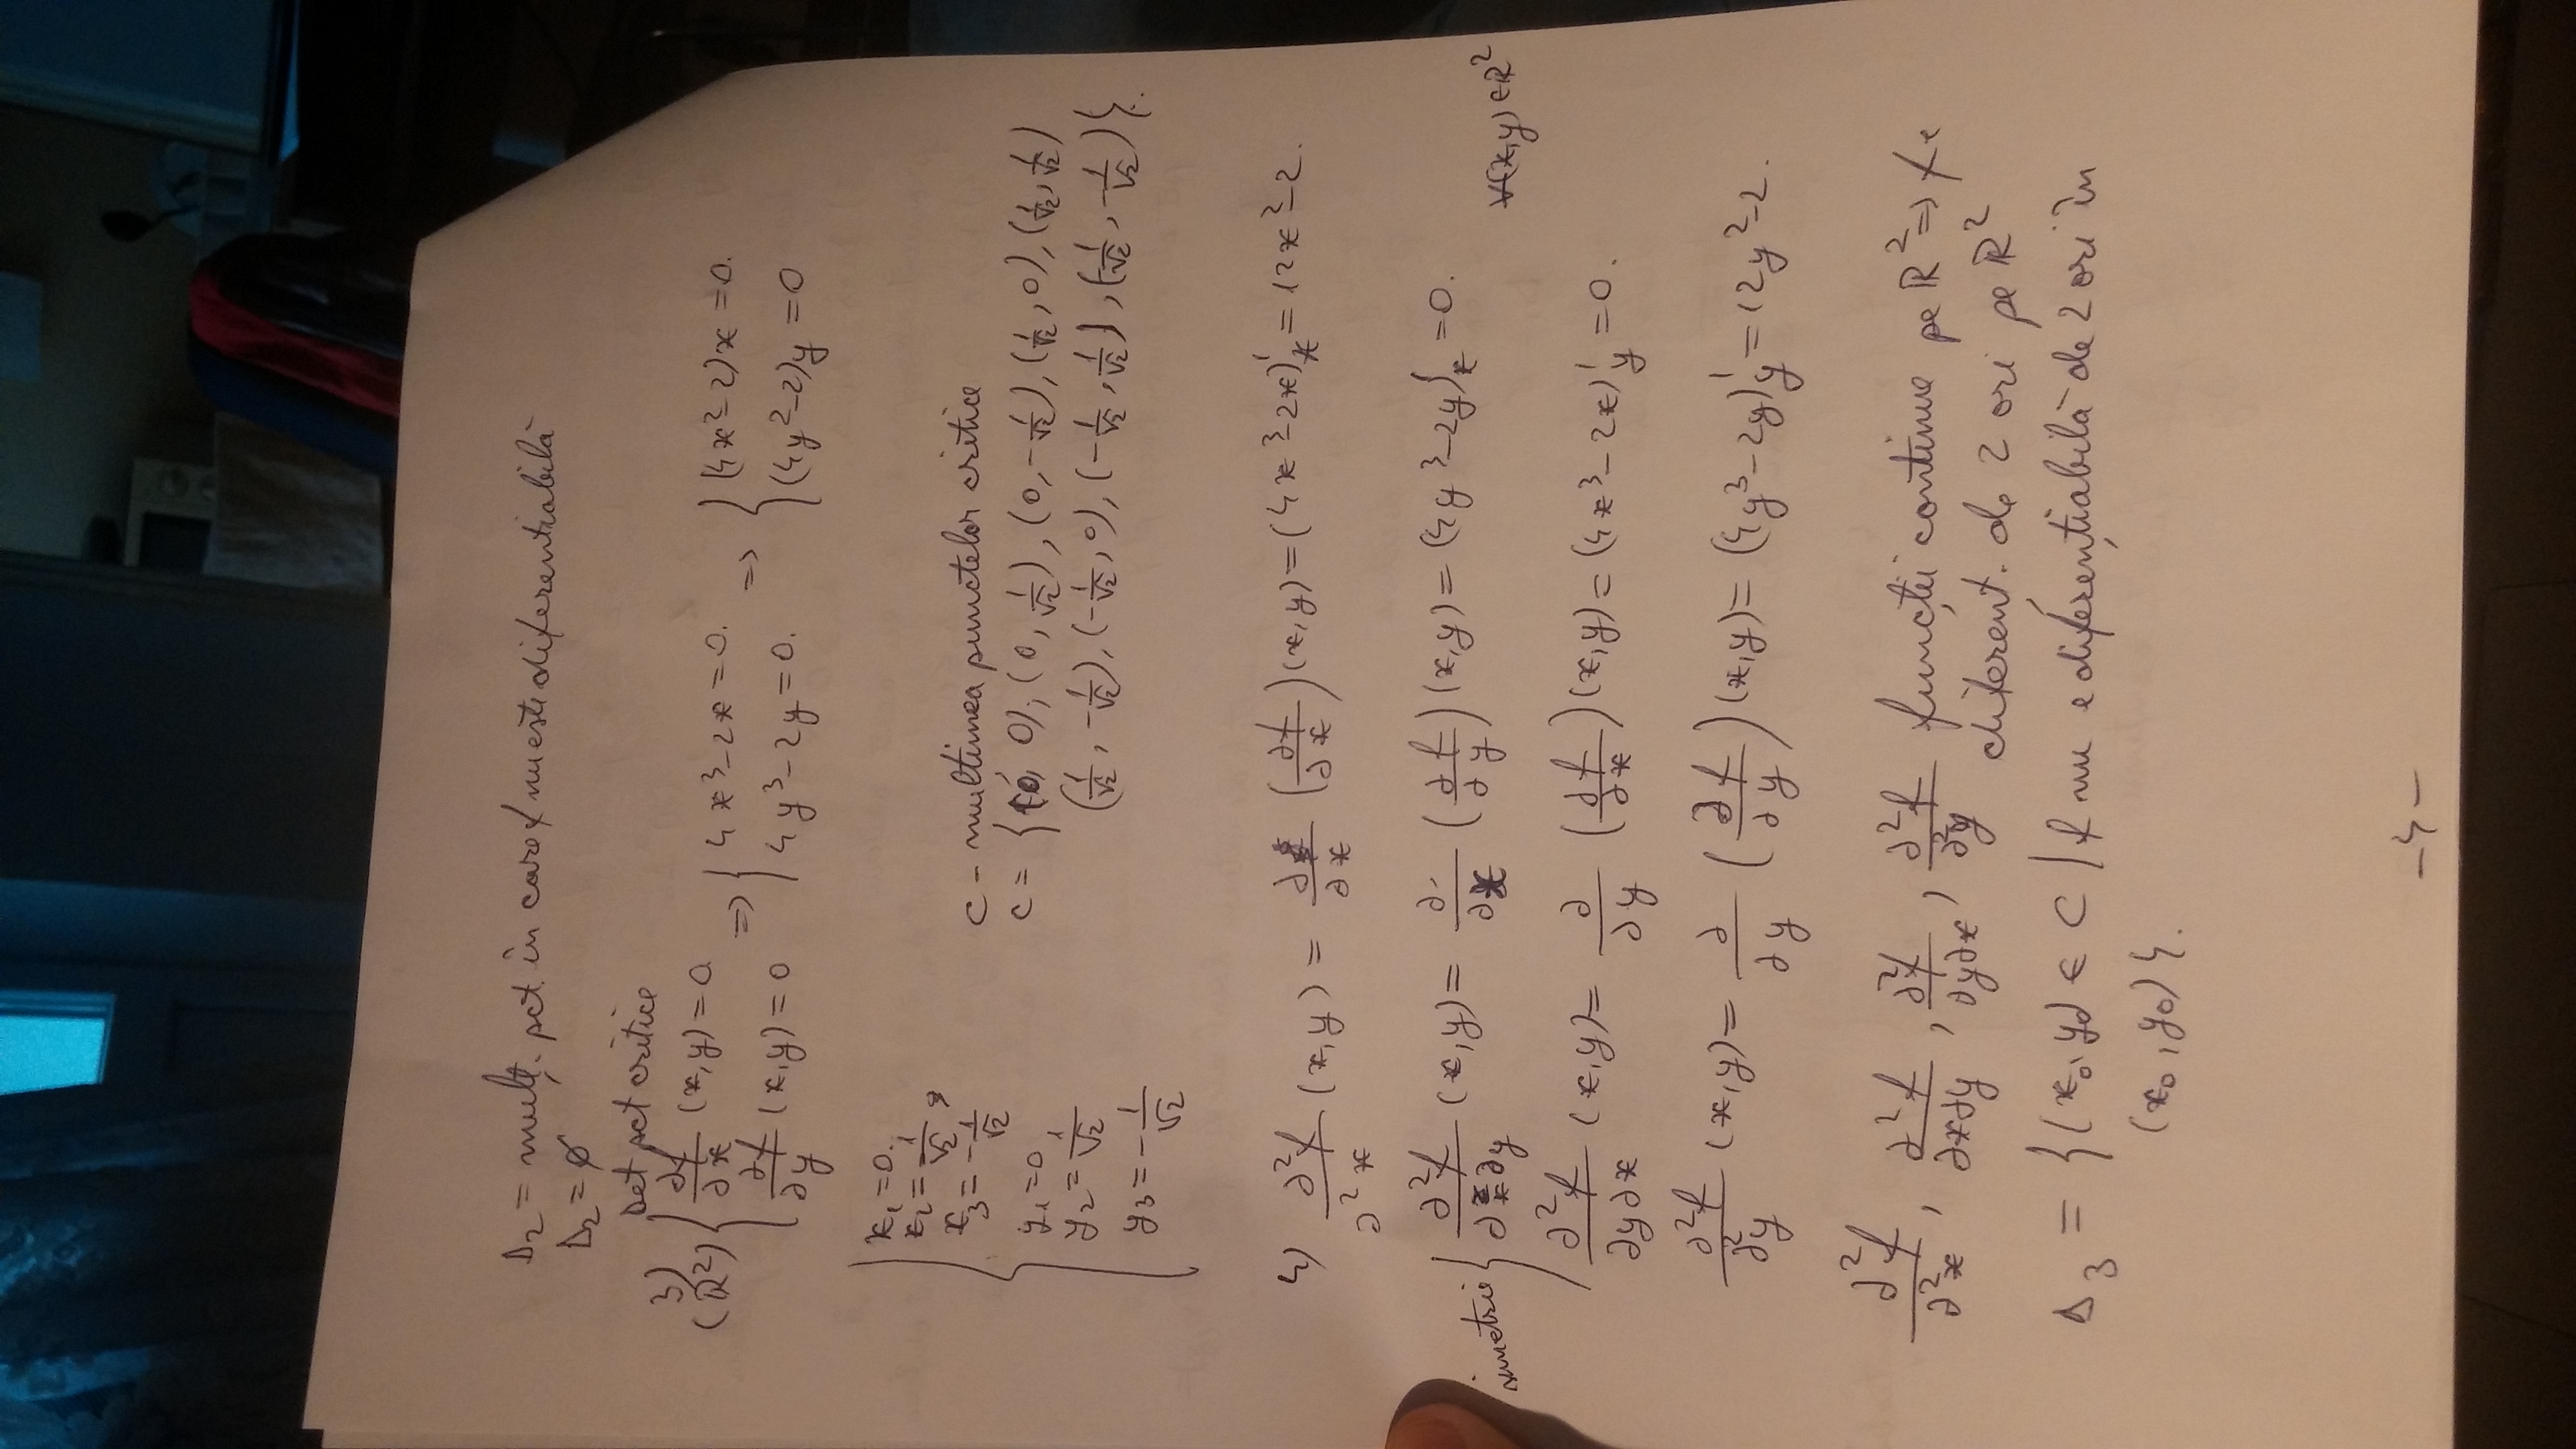 Δ₂ = mulț. pct. în care f nu este diferentiabilă
Δ₂ = ∅
3) Det pct critice
(ℝ²) { ∂f/∂x (x,y) = 0. ∂f/∂y (x,y) = 0 => { 4x³-2x = 0. 4y³-2y = 0. => { (4x²-2)x = 0. (4y²-2)y = 0
x₁ = 0.
x₂ = 1/√2,
x₃ = -1/√2
y₁ = 0
y₂ = 1/√2
y₃ = -1/√2
C - multimea punctelor critice
C = {(0, 0), (0, 1/√2), (0, -1/√2), (1/√2, 0), (1/√2, 1/√2)
(1/√2, -1/√2), (-1/√2, 0), (-1/√2, 1/√2), (-1/√2, -1/√2)}.
4) ∂²f/∂²x (x,y) = ∂/∂x (∂f/∂x)(x,y) = (4x³-2x)'ₓ = 12x²-2.
simetrie { ∂²f/∂x∂y (x,y) = ∂/∂x (∂f/∂y)(x,y) = (4y³-2y)'ₓ = 0.
∀(x,y)∈ℝ²
∂²f/∂y∂x (x,y) = ∂/∂y (∂f/∂x)(x,y) = (4x³-2x)'y = 0.
∂²f/∂²y (x,y) = ∂/∂y (∂f/∂y)(x,y) = (4y³-2y)'y = 12y²-2.
∂²f/∂²x, ∂²f/∂x∂y, ∂²f/∂y∂x, ∂²f/∂²y funcții continue pe ℝ² => f e
diferent. de 2 ori pe ℝ²
Δ₃ = {(x₀,y₀) ∈ C | f nu e diferențiabilă de 2 ori în
(x₀,y₀)}.
-4-